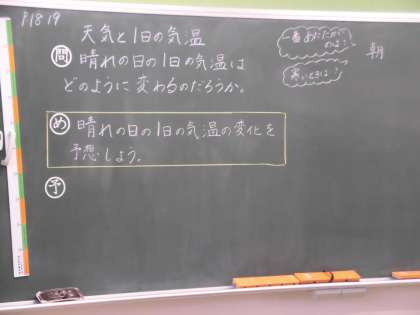 P18 19
天気と1日の気温
問 晴れの日の1日の気温は
どのように変わるのだろうか。
め 晴れの日の1日の気温の変化を
予想しよう。
予
一番あたたかい
のは?
寒いときは?
朝